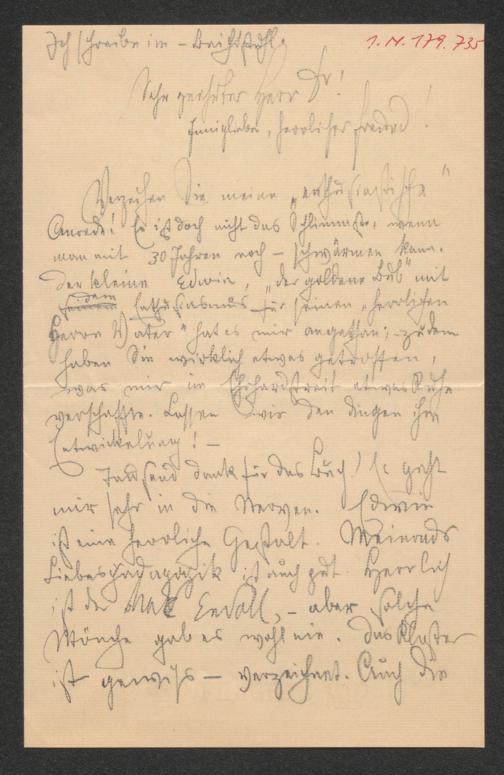 Ich schreibe im – Beichtstuhl.
1.N.179.735
Sehr geehrter Herr Dr!
Inniglieber, herrlicher Freund!
Verzeihen Sie meine „enthusiastische"
Anrede! Es ist doch nicht das Schlimmste, wenn
man mit 30 Jahren noch – schwärmen kann.
Der kleine Edwin, „der goldene Bub" mit
Enthusiasmus für seinen „herrlichen
Herrn Vater" hat es mir angethan; zudem
haben Sie wirklich etwas getroffen,
was mir im etwas Ruhe
verschaffte. Lassen wir den Dingen ihre
Entwickelung! –
Tausend Dank für das Buch! Es geht
mir sehr in die Nerven. Edwin
ist eine herrliche Gestalt. Meinrads
Liebespädagogik ist auch gut. Herrlich
ist der – aber solche
Mönche gab es wohl nie. Das Kloster
ist gewiss – verzeichnet. Auch die